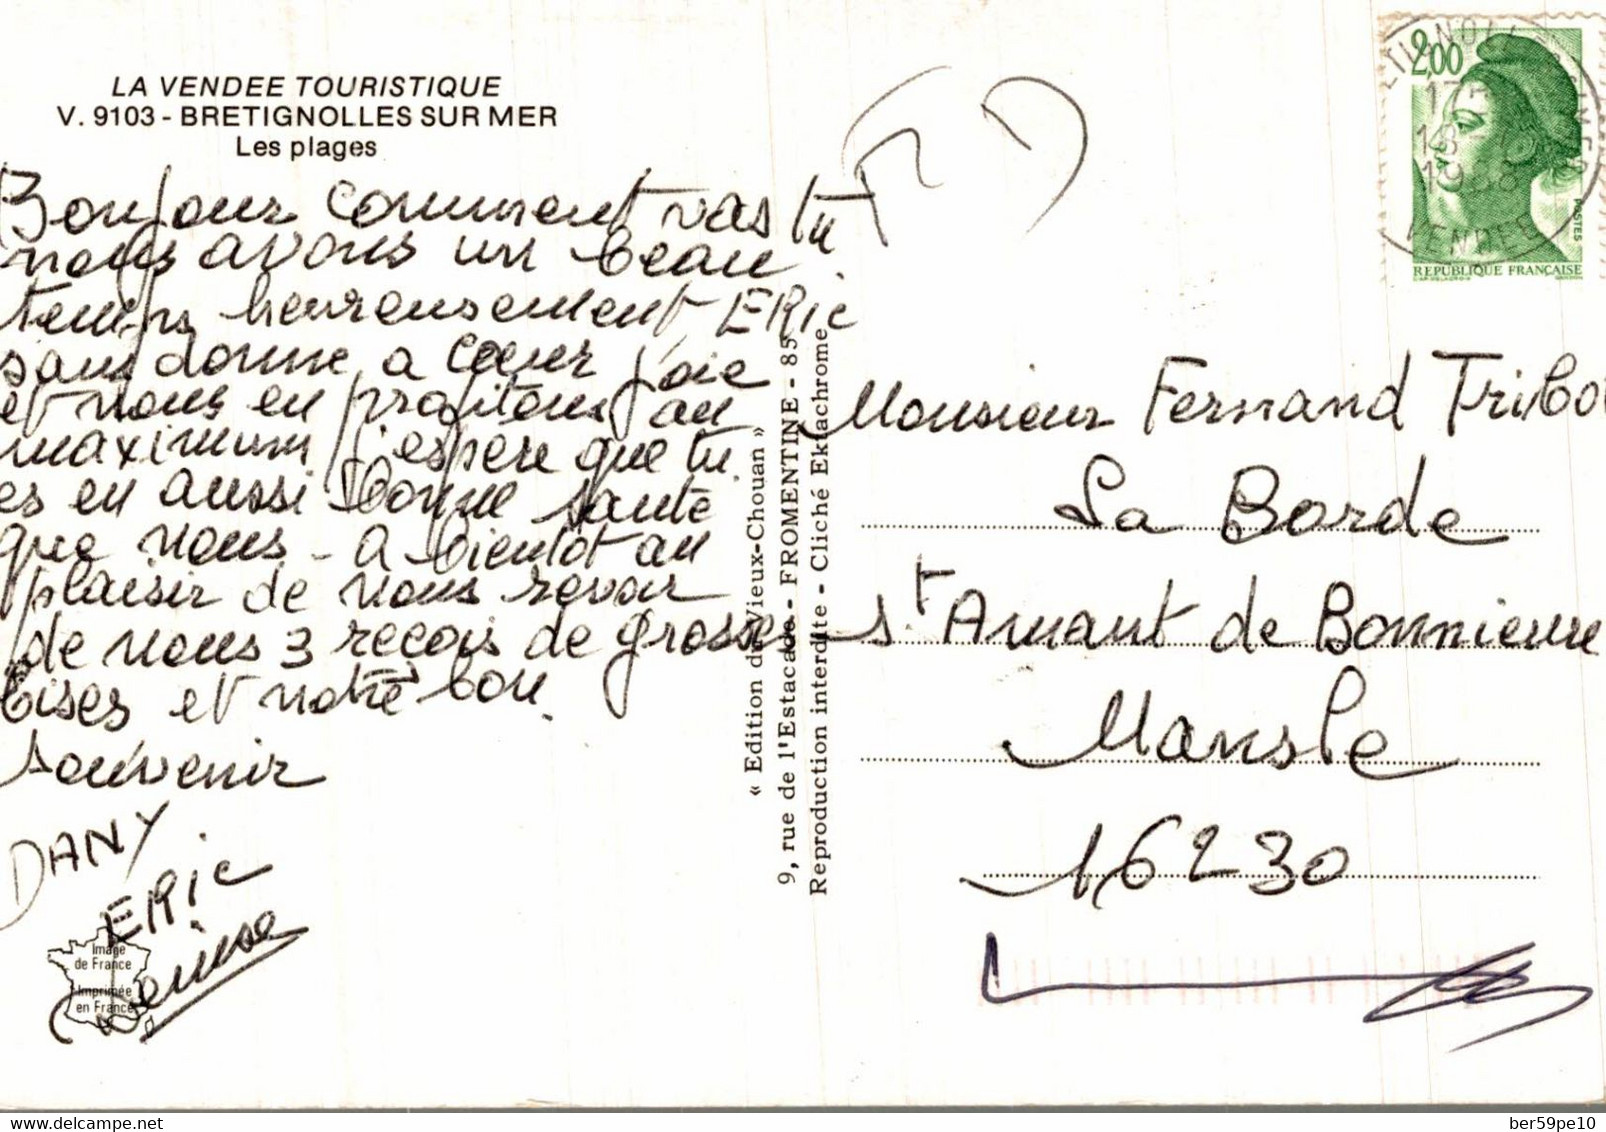 LA VENDEE TOURISTIQUE
V. 9103 - BRETIGNOLLES SUR MER
Les plages
Bonjour comment vas tu
nous avons un beau
temps heureusement ERic
sans donne a cœur joie
et nous en profitons au
maximum j'espère que tu
es en aussi Bonne santé
que nous - a bientot au
plaisir de nous revoir
de nous 3 recois de grosses
bises et notre bon
souvenir
DANY
ERic
Denise
Image
de France
Imprimée
en France
« Edition du Vieux-Chouan »
9, rue de l'Estacade - FROMENTINE - 85
Reproduction interdite - Cliché Ektachrome
2,00
17
18
1988
VENDEE
POSTES
REPUBLIQUE FRANÇAISE
Monsieur Fernand Tribo
La Borde
St Amant de Bonnieure
Mansle
16230
ber59pe10